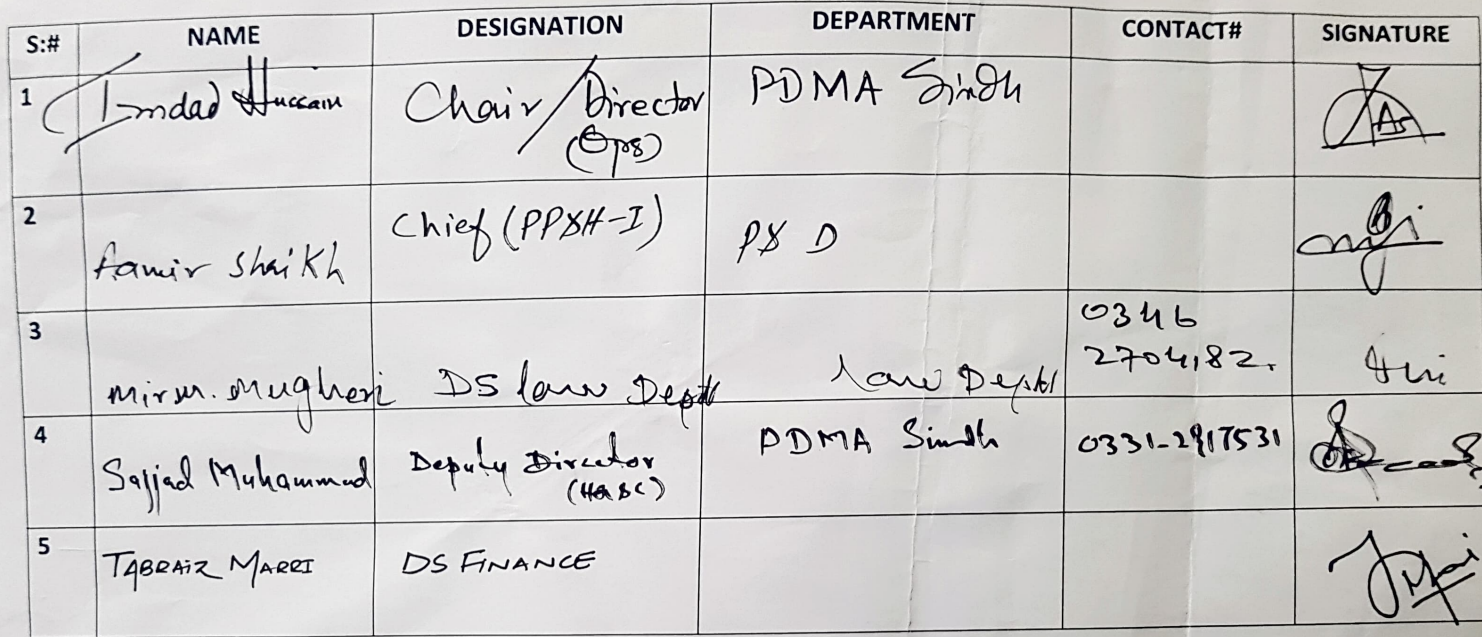 S:# NAME DESIGNATION DEPARTMENT CONTACT# SIGNATURE
1 Imdad Hussain Chair/Director PDMA Sindh
(Ops)
2 Aamir Shaikh Chief (PP&H-I) P& D
3 0346
2704182.
Mir M. Mugheri DS law Deptt law Deptt
4 Sajjad Muhammad Deputy Director PDMA Sindh 0331-2917531
5 TABRAIZ MARRI DS FINANCE